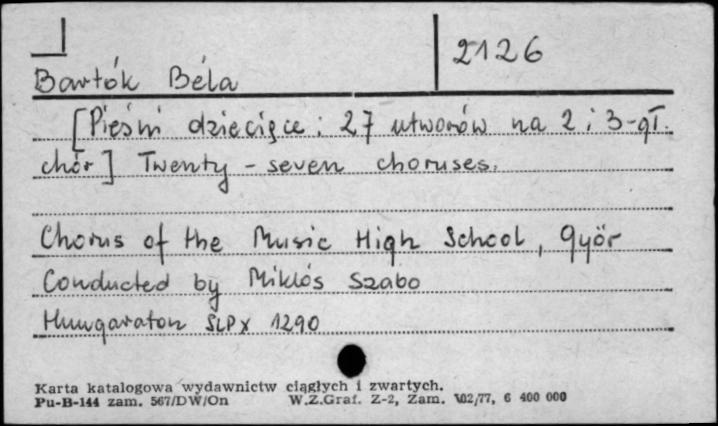 2126
Bartók Béla
[Pieśni dziecięce: 27 utworów na 2 i 3-gł.
chór] Twenty - seven choruses.
Chorus of the Music High School, Györ
Conducted by Miklós Szabo
Hungaraton SLPX 1290
Karta katalogowa wydawnictw ciągłych i zwartych.
Pu-B-144 zam. 567/DW/On W.Z.Graf. Z-2, Zam. 102/77, 6 400 000